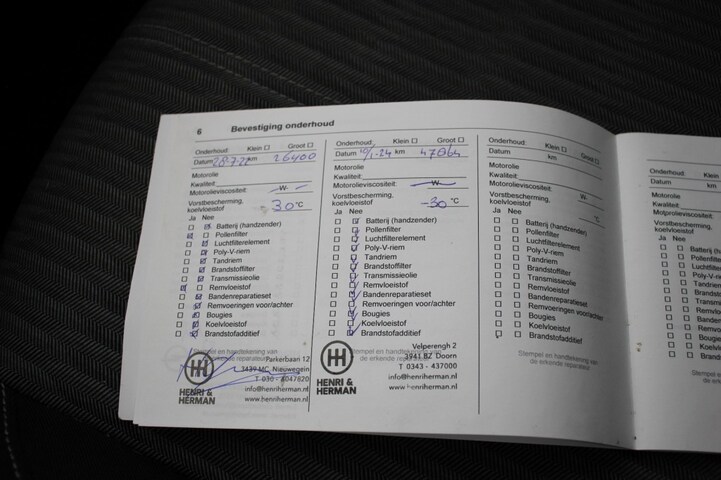 6 Bevestiging onderhoud
Onderhoud: Klein Groot
Datum 28-7-22 km 26400
Motorolie
Kwaliteit:
Motorolieviscositeit: W-
Vorstbescherming,
koelvloeistof -30 °C
Ja Nee
Batterij (handzender)
Pollenfilter
Luchtfilterelement
Poly-V-riem
Tandriem
Brandstoffilter
Transmissieolie
Remvloeistof
Bandenreparatieset
Remvoeringen voor/achter
Bougies
Koelvloeistof
Brandstofadditief
Stempel en handtekening van
de erkende reparateur
Parkerbaan 12
3439 MC Nieuwegein
info@henriherman.nl
www.henriherman.nl
HENRI &
HERMAN
Onderhoud: Klein Groot
Datum 10/1-24 km 47864
Motorolie
Kwaliteit:
Motorolieviscositeit: W-
Vorstbescherming,
koelvloeistof -30 °C
Ja Nee
Batterij (handzender)
Pollenfilter
Luchtfilterelement
Poly-V-riem
Tandriem
Brandstoffilter
Transmissieolie
Remvloeistof
Bandenreparatieset
Remvoeringen voor/achter
Bougies
Koelvloeistof
Brandstofadditief
Stempel en handtekening van
de erkende reparateur
Velperengh 2
3941 BZ Doorn
T 0343 - 437000
info@henriherman.nl
www.henriherman.nl
HENRI &
HERMAN
Onderhoud: Klein Groot
Datum km
Motorolie
Kwaliteit:
Motorolieviscositeit: -W-
Vorstbescherming,
koelvloeistof °C
Ja Nee
Batterij (handzender)
Pollenfilter
Luchtfilterelement
Poly-V-riem
Tandriem
Brandstoffilter
Transmissieolie
Remvloeistof
Bandenreparatieset
Remvoeringen voor/achter
Bougies
Koelvloeistof
Brandstofadditief
Stempel en handtekening van
de erkende reparateur
Onderhoud: Klein
Datum km
Motorolie
Kwaliteit:
Motorolieviscositeit:
Vorstbescherming,
koelvloeistof
Ja Nee
Batterij
Pollenfilter
Luchtfilterelement
Poly-V-riem
Tandriem
Brandstoffilter
Transmissieolie
Remvloeistof
Bandenreparatieset
Remvoeringen
Bougies
Koelvloeistof
Brandstofadditief
Stempel en
de erkende